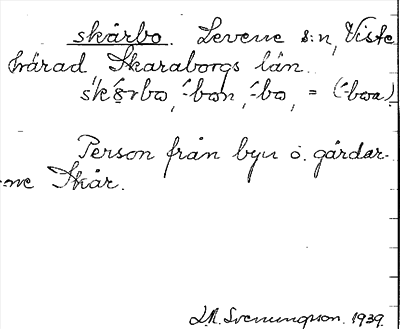 skårbo. Levene s:n, Viste
härad, Skaraborgs län.
sk'ǫrbo, -'bon, -'bo, = (-'boa)
Person från byn o. gårdar-
ne Skår.
J.A. Svenungsson. 1939.